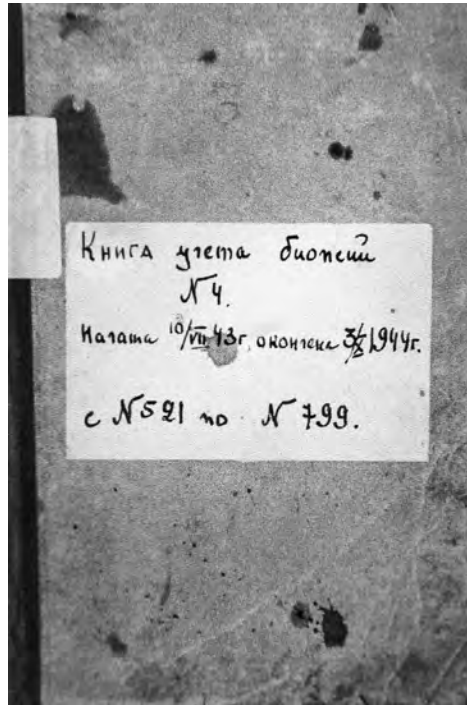 Книга учета биопсий
N 4.
Начата 10/VII 43г. окончена 3/X 1944г.
с N 521 по N 799.